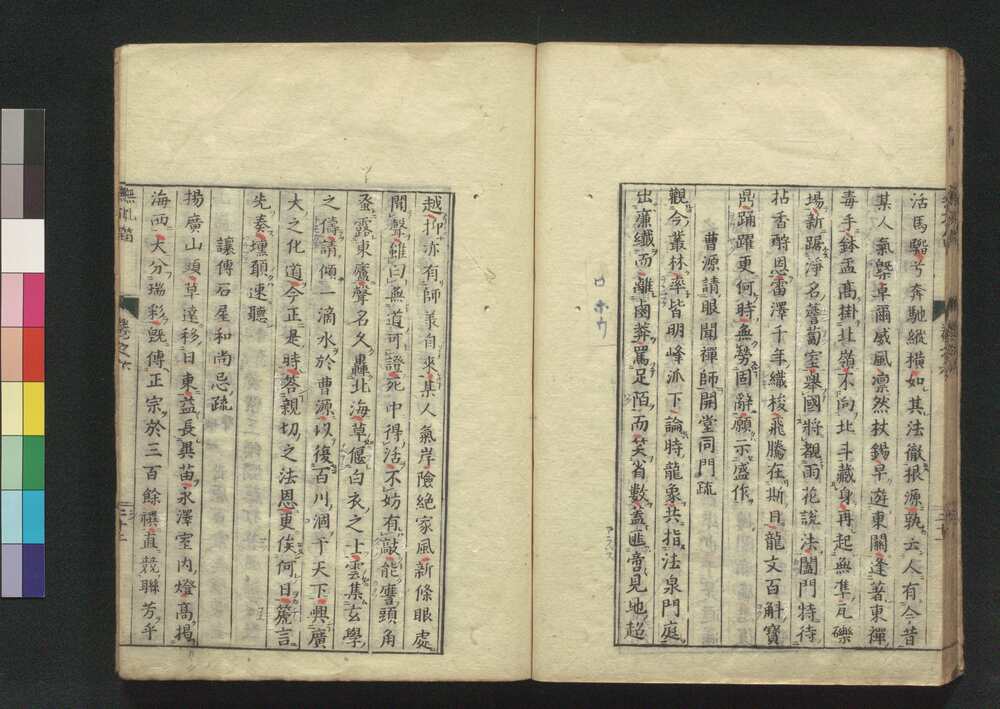 活馬騣兮奔馳縱橫如其法徹根源孰云人有今昔
某人氣槩卓爾威風凛然杖錫早遊東關逢著東禪
毒手鉢盂髙掛北嶺不向北斗藏身再起無準瓦礫
塲新踞淨名薝蔔室舉國將覩雨花說法闔門特待
拈香酧恩雷澤千年織梭飛騰在斯日龍文百斛寶
鼎踊躍更何時無勞固辭願示盛作
曹源請眼聞禪師開堂同門疏
觀今叢林率皆明峰派下論時龍象共指法泉門庭
出廉纖而離鹵莽罵足陌而笑省數蓋匪啻見地超
越抑亦有師承自來某人氣岸險絶家風新條眼處
聞聲雖曰無道可證死中得活不妨有敲能磨頭角
蚤露東廬聲名久轟北海草偃白衣之士雲集玄學
之儔請傾一滴水於曹源以後百川涸于天下興廣
大之化道今正是時荅親切之法恩更俟何日箎言
先奏壎顧速聽
讓傳石屋和尚忌疏
揚廣山頭草逹移日東益長異苗永澤室内燈髙揭
海西大分瑞彩旣傳正宗於三百餘禩直裁聯芳乎
卷之六
三十二